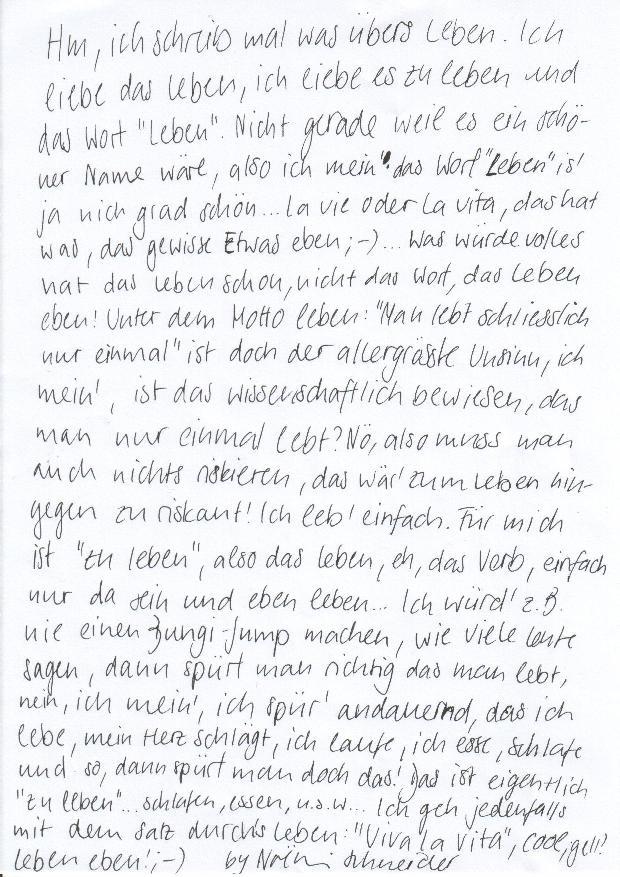 Hm, ich schreib mal was übers Leben. Ich
liebe das Leben, ich liebe es zu leben und
das Wort "Leben". Nicht gerade weil es ein schö-
ner Name wäre, also ich mein' das Wort "Leben" is'
ja nich grad schön... La vie oder La vita, das hat
was, das gewisse Etwas eben ;-)... Was würdevolles
hat das Leben schon, nicht das Wort, das Leben
eben! Unter dem Motto leben: "Man lebt schliesslich
nur einmal" ist doch der allergrösste Unsinn, ich
mein', ist das wissenschaftlich bewiesen, das
man nur einmal lebt? Nö, also muss man
auch nichts riskieren, das wär' zum Leben hin-
gegen zu riskant! Ich leb' einfach. Für mich
ist "zu leben", also das Leben, eh, das Verb, einfach
nur da sein und eben leben... Ich würd' z.B.
nie einen Bungi-Jump machen, wie viele Leute
sagen, dann spürt man richtig das man lebt,
nein, ich mein', ich spür' andauernd, das ich
lebe, mein Herz schlägt, ich laufe, ich esse, schlafe
und so, dann spürt man doch das! Das ist eigentlich
"zu leben"... schlafen, essen, u.s.w... Ich geh jedenfalls
mit dem Satz durchs Leben: "Viva la Vita", cool, gell?
Leben eben! ;-) by Noëmi Schneider